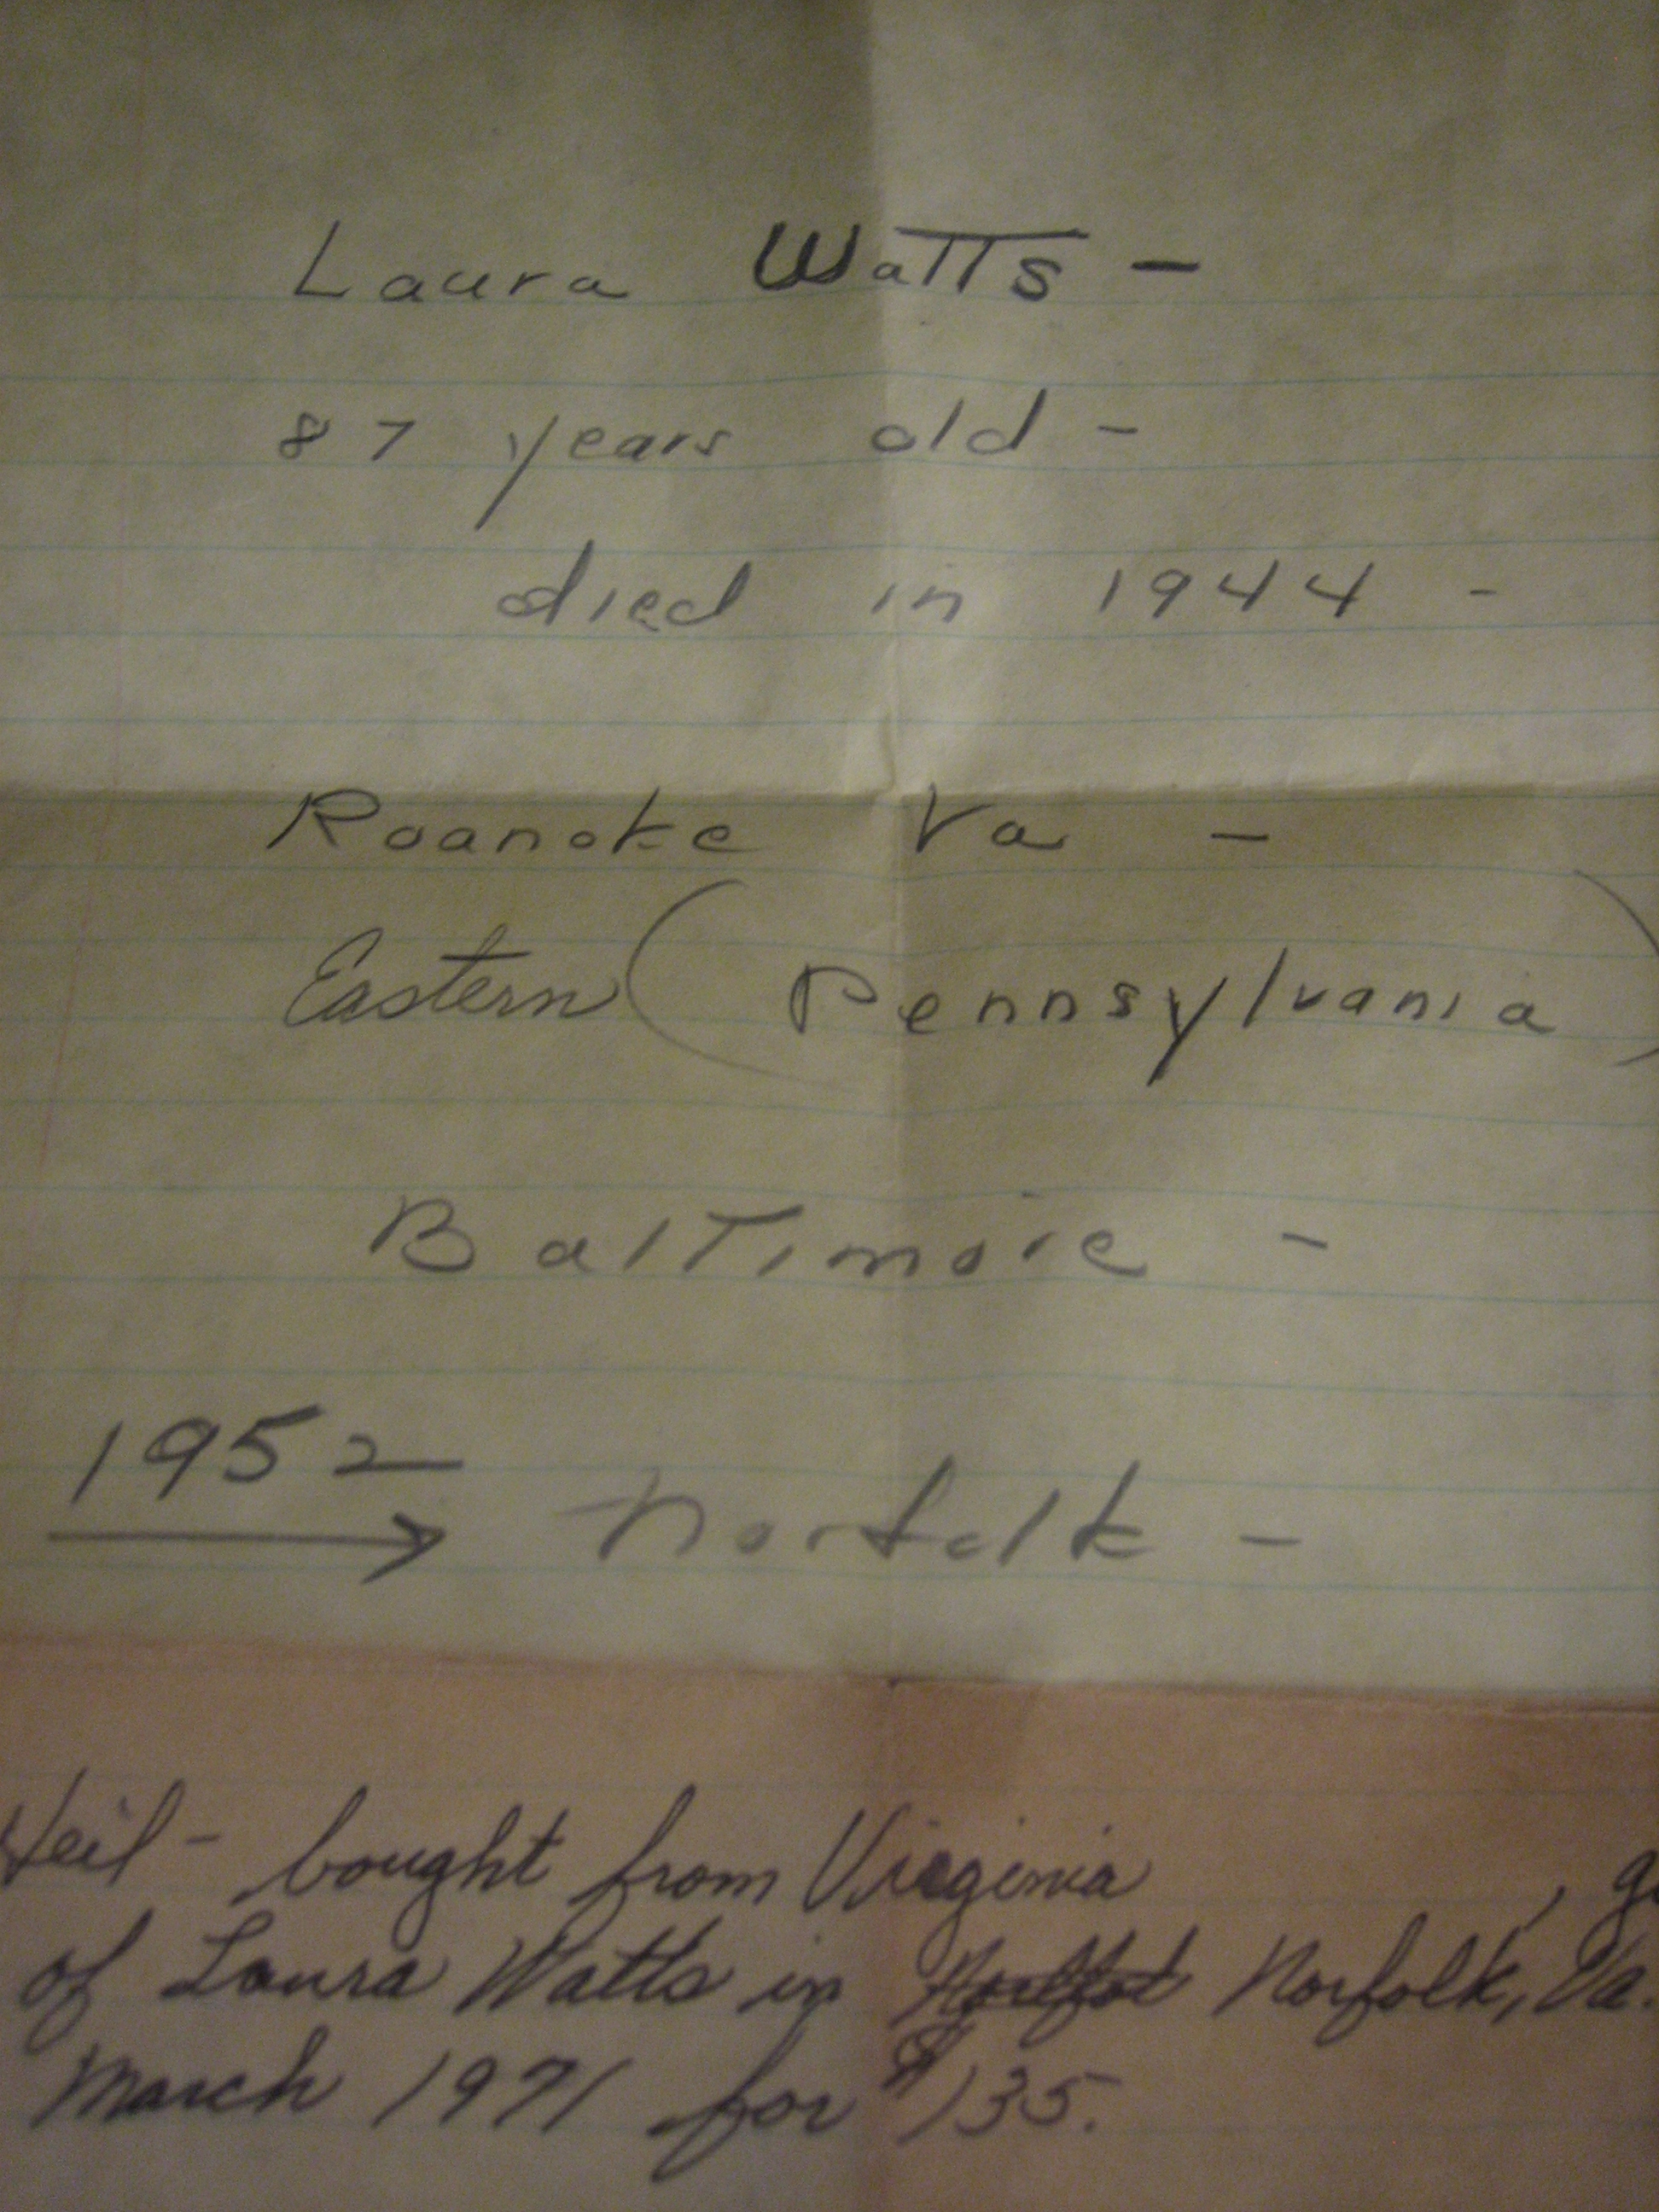 Laura Watts -
87 years old -
died in 1944 -
Roanoke Va -
Eastern (Pennsylvania)
Baltimore -
1952
→ Norfolk -
bought from Virginia ,
of Laura Watts in Norfolk, Va.
March 1971 for $135.